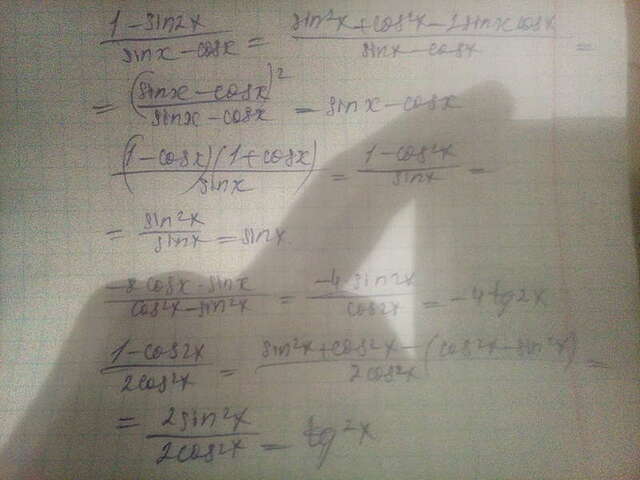 (1 - sin2x)/(sinx - cosx) = (sin²x + cos²x - 2sinxcosx)/(sinx - cosx) =
= (sinx - cosx)²/(sinx - cosx) = sinx - cosx
(1 - cosx)(1 + cosx)/sinx = (1 - cos²x)/sinx =
= sin²x/sinx = sinx
(-8cosx·sinx)/(cos²x - sin²x) = (-4 sin2x)/cos2x = -4tg2x
(1 - cos2x)/2cos²x = (sin²x + cos²x - (cos²x - sin²x))/2cos²x =
= 2sin²x/2cos²x = tg²x